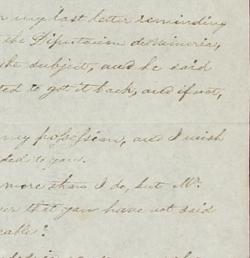 my last letter reminding
the Diputacion de Mineria,
the subject, and he said
ted to get it back, and if not,
my possession, and I wish
ded to you.
more than I do, but Mr.
ver that you have not said